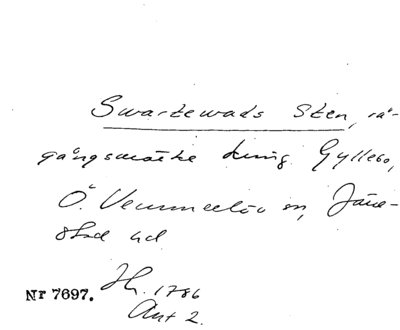 Swartewads Sten, rå-
gångsmärke kring Gyllebo,
Ö. Vemmerlöv sn, Järre-
stad hd
Nr 7697. Jh. 1786
Akt 2.